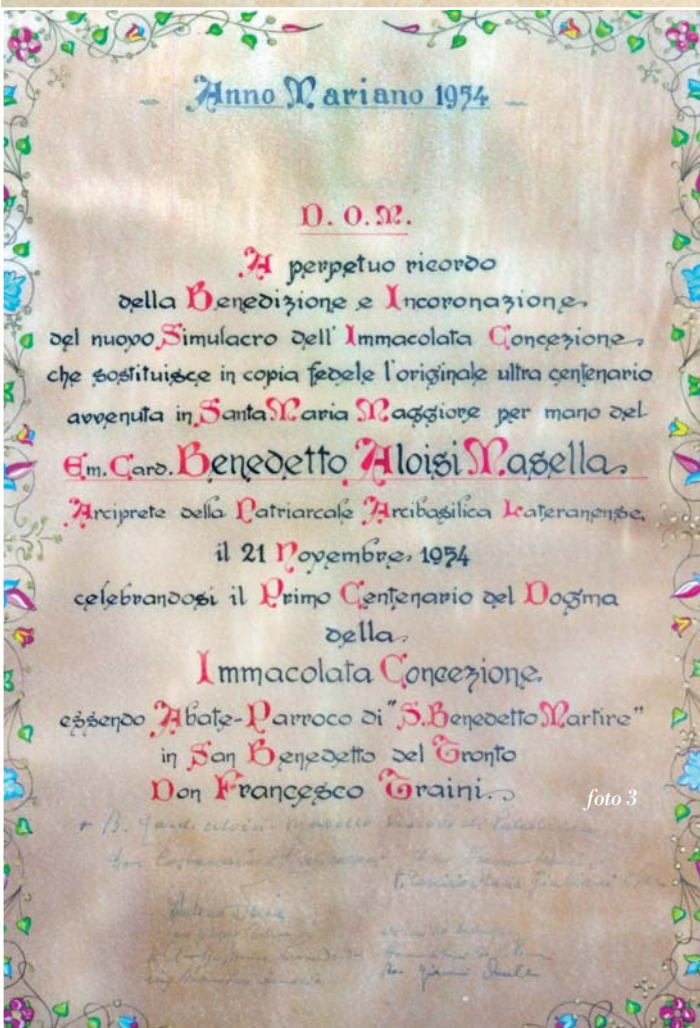 Anno Mariano 1954
D. O. M.
A perpetuo ricordo
della Benedizione e Incoronazione
del nuovo Simulacro dell' Immacolata Concezione
che sostituisce in copia fedele l'originale ultra centenario
avvenuta in Santa Maria Maggiore per mano del
Em. Card. Benedetto Aloisi Masella
Arciprete della Patriarcale Arcibasilica Lateranense
il 21 Novembre 1954
celebrandosi il Primo Centenario del Dogma
della
Immacolata Concezione
essendo Abate-Parroco di "S. Benedetto Martire"
in San Benedetto del Tronto
Don Francesco Traini.
foto 3
+ B. Card. Aloisi Masella